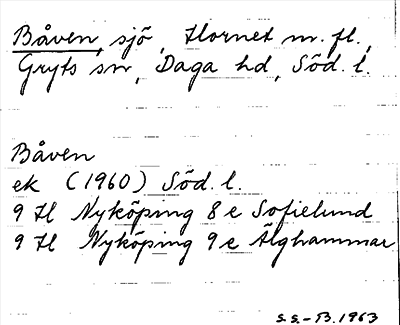 Båven, sjö, Hornet m. fl.,
Gryts sn, Daga hd, Söd. l.
Båven
ek (1960) Söd. l.
9 H Nyköping 8 e Sofielund
9 H Nyköping 9 e Älghammar
S.S.-B. 1963